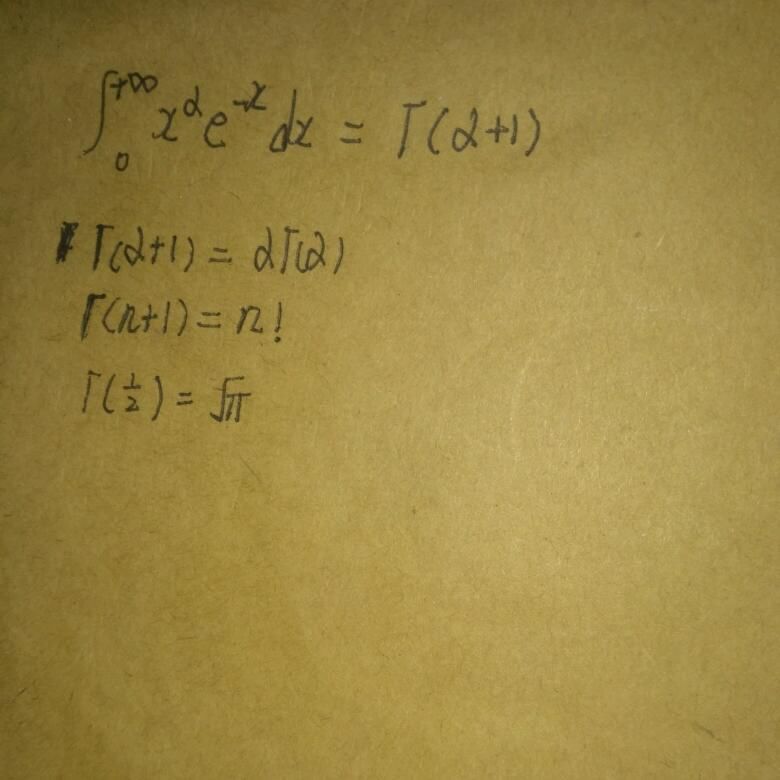 ∫₀⁺∞ x^α e^(-x) dx = Γ(α+1)
Γ(α+1) = αΓ(α)
Γ(n+1) = n!
Γ(1/2) = √π